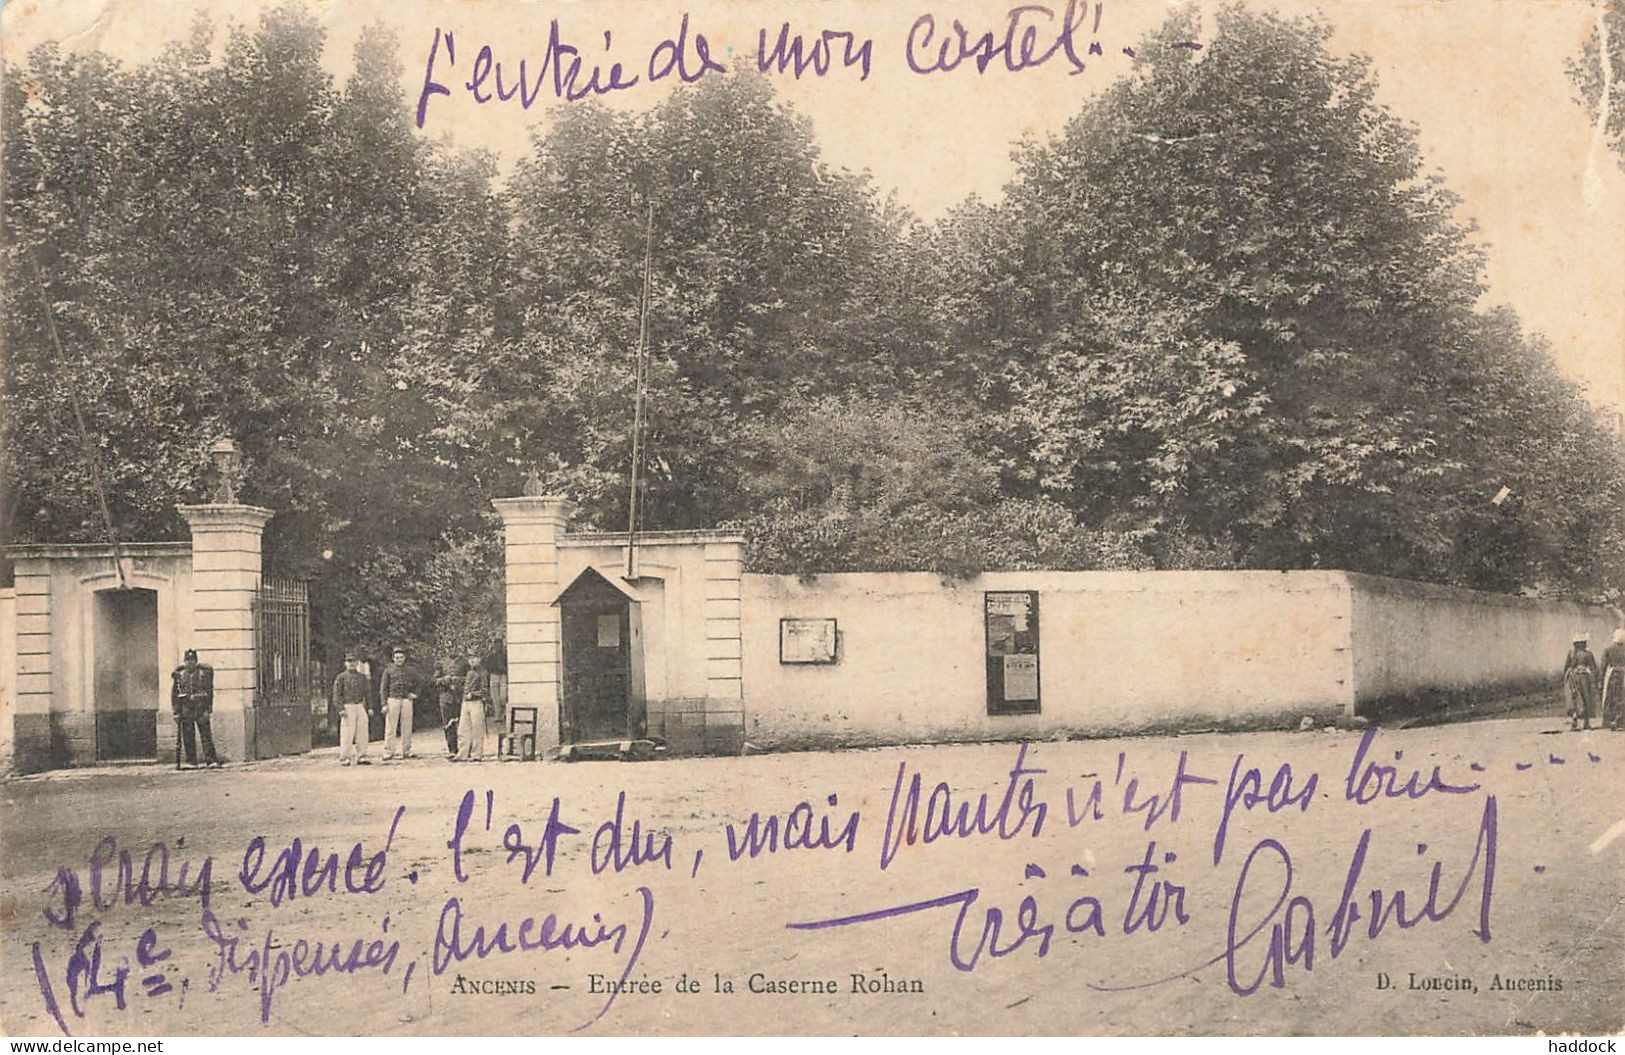 L'entrée de mon castel!..—
exercé. l'est dur, mais Nantes n'est pas loin.....
(4e, Dispensés, Ancenis). — Très à toi Gabriel.
ANCENIS — Entrée de la Caserne Rohan
D. Loncin, Ancenis
www.delcampe.net
haddock